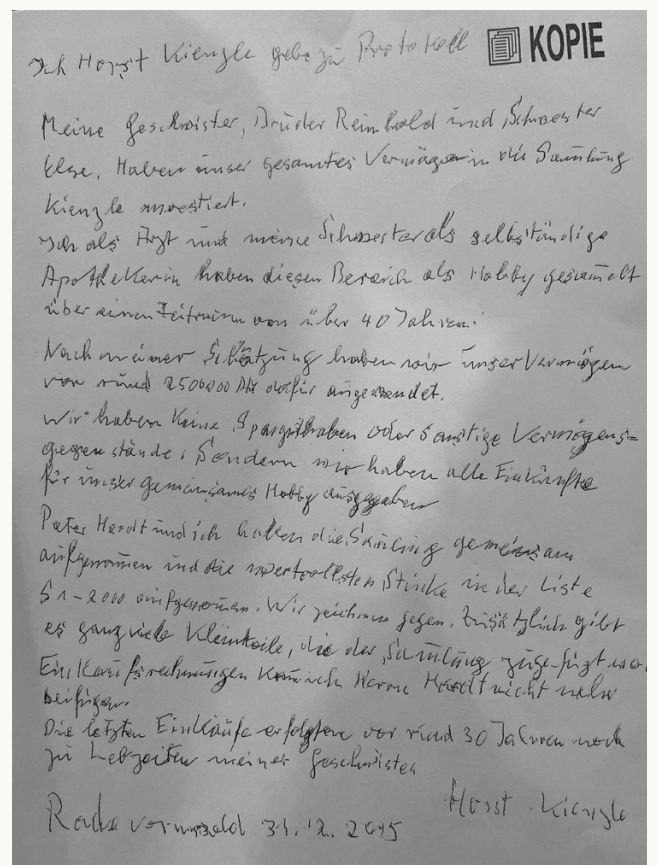 Ich Horst Kienzle gebe zu Protokoll
KOPIE
Meine Geschwister, Bruder Reinhold und Schwester
Else, Haben unser gesamtes Vermögen in die Samlung
Kienzle investiert.
Ich als Arzt und meine Schwester als selbständige
Apothekerin haben diesen Bereich als Hobby gesamelt
über einen Zeitraum von über 40 Jahren.
Nach meiner Schätzung haben wir unser Vermögen
von rund 2500000 DM dafür angewendet.
Wir haben keine Sparguthaben oder sonstige Vermögens=
gegenstände. Sondern wir haben alle Einkünfte
für unser gemeinsames Hobby ausgegeben
Peter Hardt und ich haben die Samlung gemeinsam
aufgenomen und die wertvollsten Stücke in der Liste
S 1-2000 aufgenomen. Wir zeichnen gegen. Zusätzlich gibt
es ganz viele Kleinteile, die der Samlung zugefügt
Einkaufsrechnungen kann ich Herrn Hardt nicht mehr
beifügen.
Die letzten Einkäufe erfolgten vor rund 30 Jahren noch
zu Lebzeiten meiner Geschwister
Horst Kienzle
Radevormwald 31.12.2015